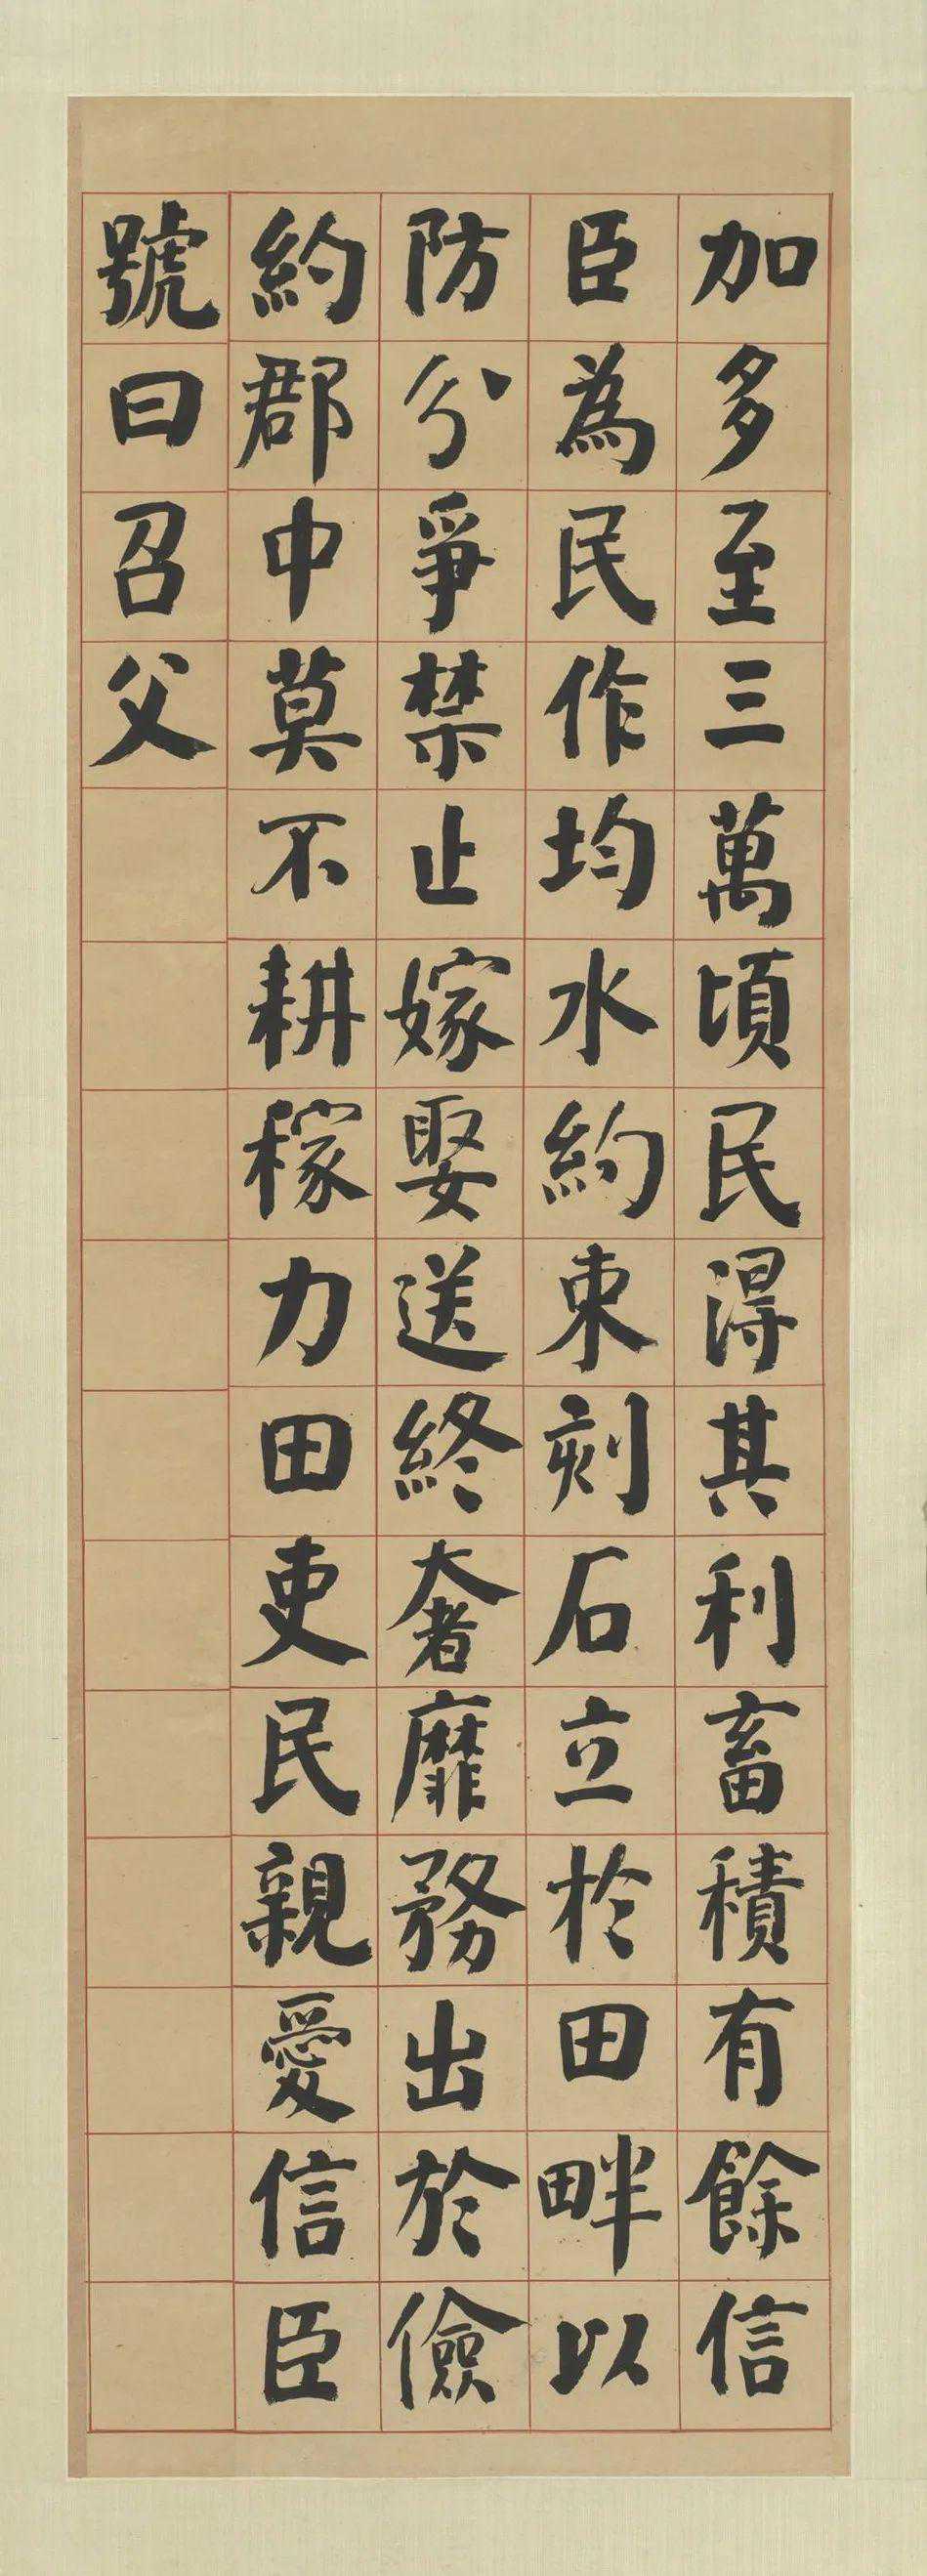 加多至三萬頃民淂其利畜積有餘信
臣為民作均水約束刻石立於田畔以
防分爭禁止嫁娶送終奢靡務出於儉
約郡中莫不耕稼力田吏民親愛信臣
號曰召父